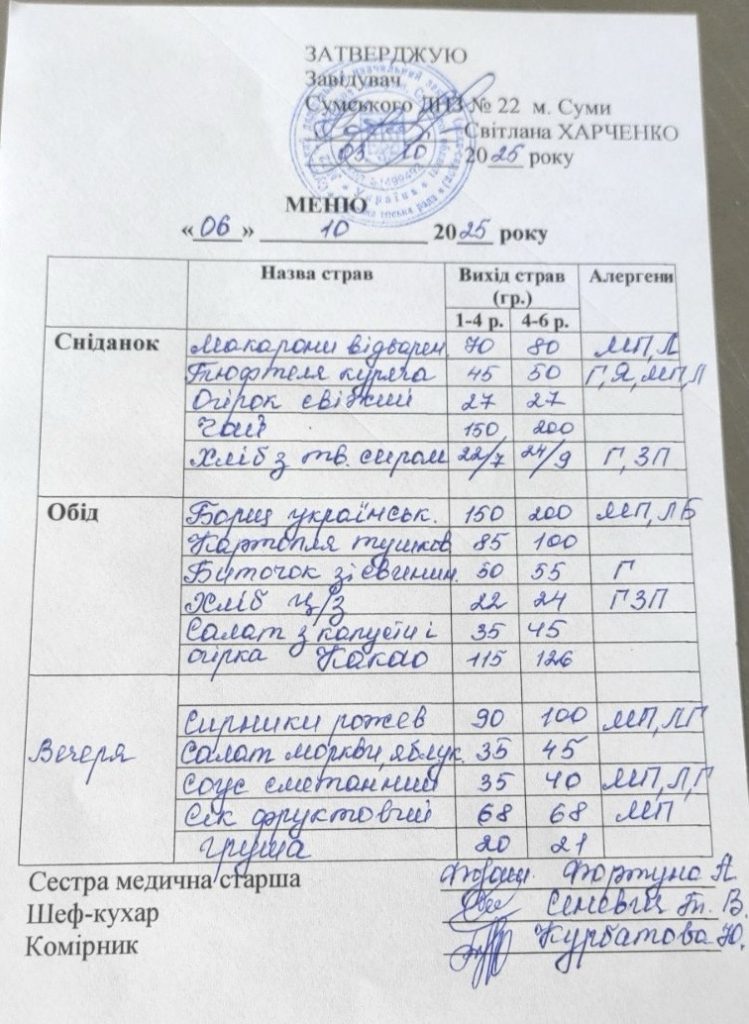 ЗАТВЕРДЖУЮ
Завідувач
Сумського ДНЗ № 22 м. Суми
Світлана ХАРЧЕНКО
03 10 2025 року
МЕНЮ
«06» 10 2025 року
Назва страв Вихід страв (гр.) Алергени
1-4 р. 4-6 р.
Сніданок Макарони відварен. 70 80 МП, Л
Тюфтеля куряча 45 50 Г, Я, МП, Л
Огірок свіжий 27 27
Чай 150 200
Хліб з тв. сиром 22/7 24/9 Г, ЗП
Обід Борщ українськ. 150 200 МП, ЛБ
Картопля тушков 85 100
Биточок зі свинин. 50 55 Г
Хліб ц/з 22 24 Г ЗП
Салат з капусти і 35 45
огірка Какао 115 126
Вечеря Сирники рожев 90 100 МП, Л Г
Салат моркви, яблук. 35 45
Соус сметанний 35 40 МП, Л, Г
Сік фруктовий 68 68 МП
груша 20 21
Сестра медична старша Фортуна А.
Шеф-кухар В.
Комірник Курбатова Ю.